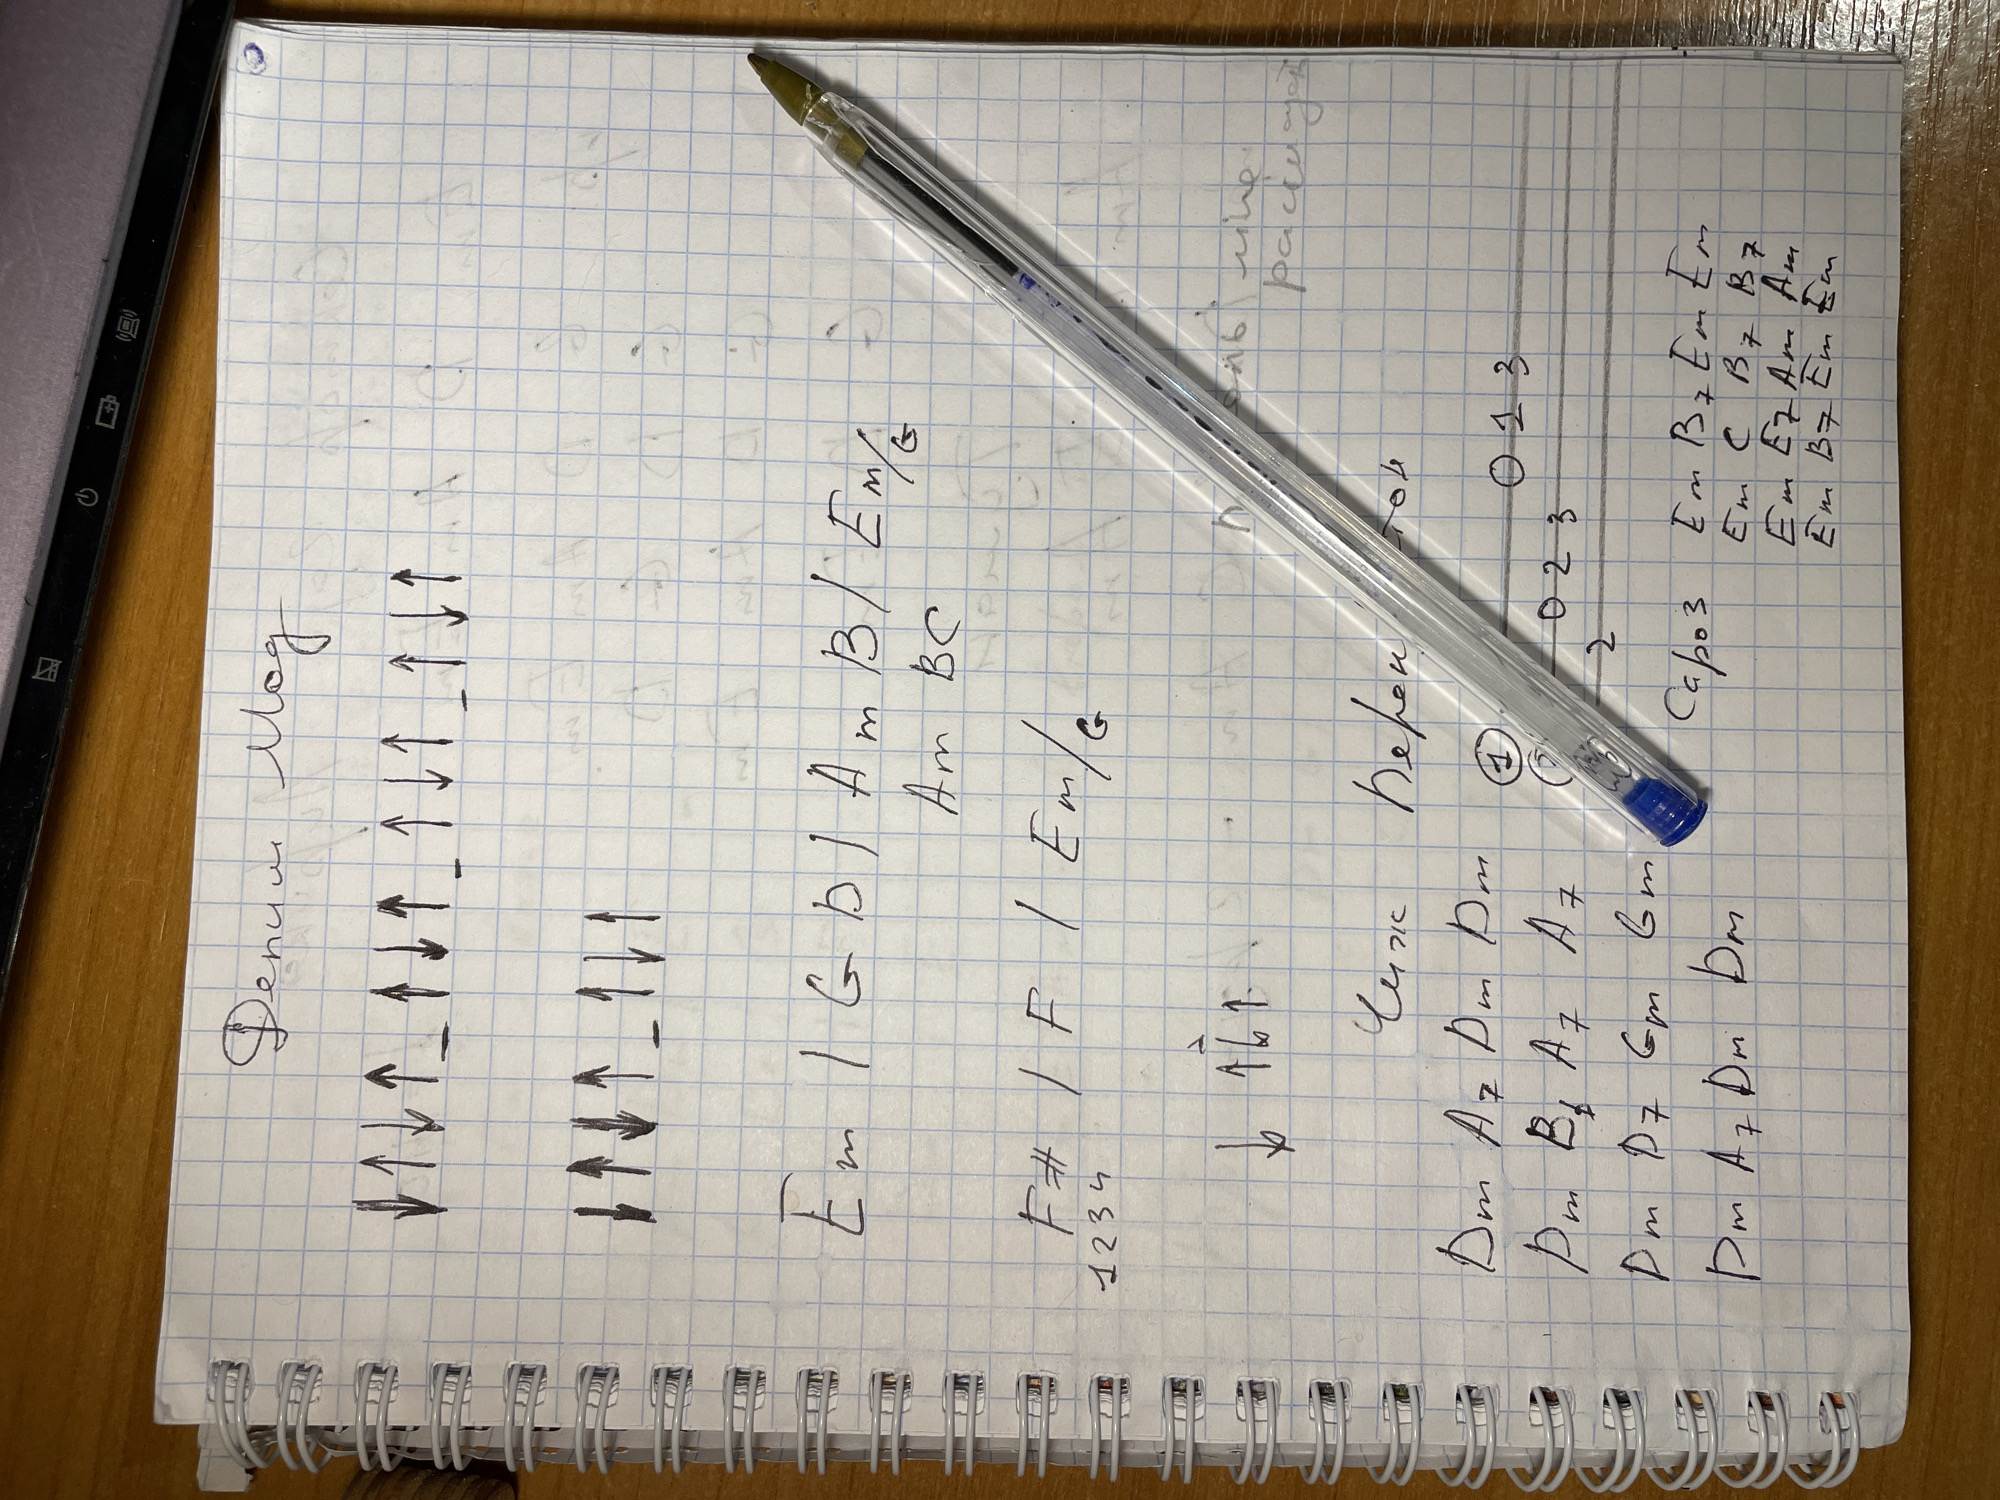 Депиш Мод
↓ ↑ ↓ ↑ _ ↑ ↓ ↑ _ ↑ ↓ ↑ _ ↑ ↓ ↑
↓ ↑ ↓ ↑ _ ↑ ↓ ↑
Em / G D / Am B / Em/G
Am BC
F# / F / Em/G
1234
Чиж
Dm A7 Dm Dm
Dm Bb A7 A7
Dm D7 Gm Gm
Dm A7 Dm Dm
① 0 1 3
0 2 3
2
Capo3 Em B7 Em Em
Em C B7 B7
Em E7 Am Am
Em B7 Em Em Em